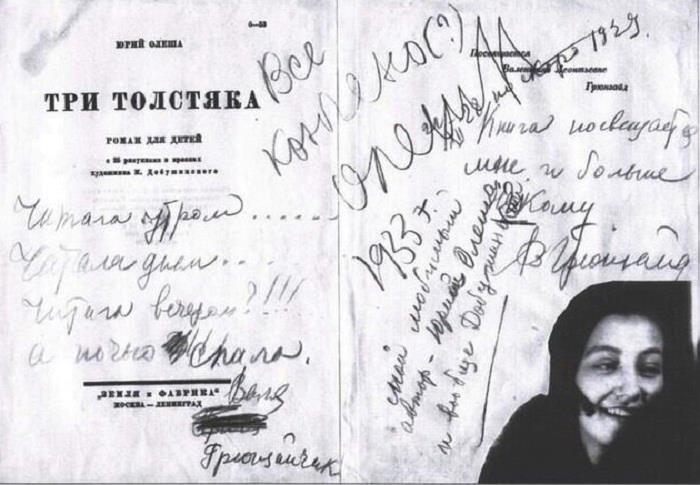 6—53
ЮРИЙ ОЛЕША
ТРИ ТОЛСТЯКА
РОМАН ДЛЯ ДЕТЕЙ
с 25 рисунками в красках
художника М. Добужинского
Все
конечно(?)
Читала утром......
Читала днем...
Читала вечером?!!!
а ночью спала.
„ЗЕМЛЯ и ФАБРИКА“
МОСКВА — ЛЕНИНГРАД
Валя
Посвящается
Валентине Леонтьевне
Грюнзайд
1929.
Книга посвящается
мне и больше
никому
В Грюнзайд
1933 г
самый любимый
автор - Юрий Олеша
и вообще Добужинский